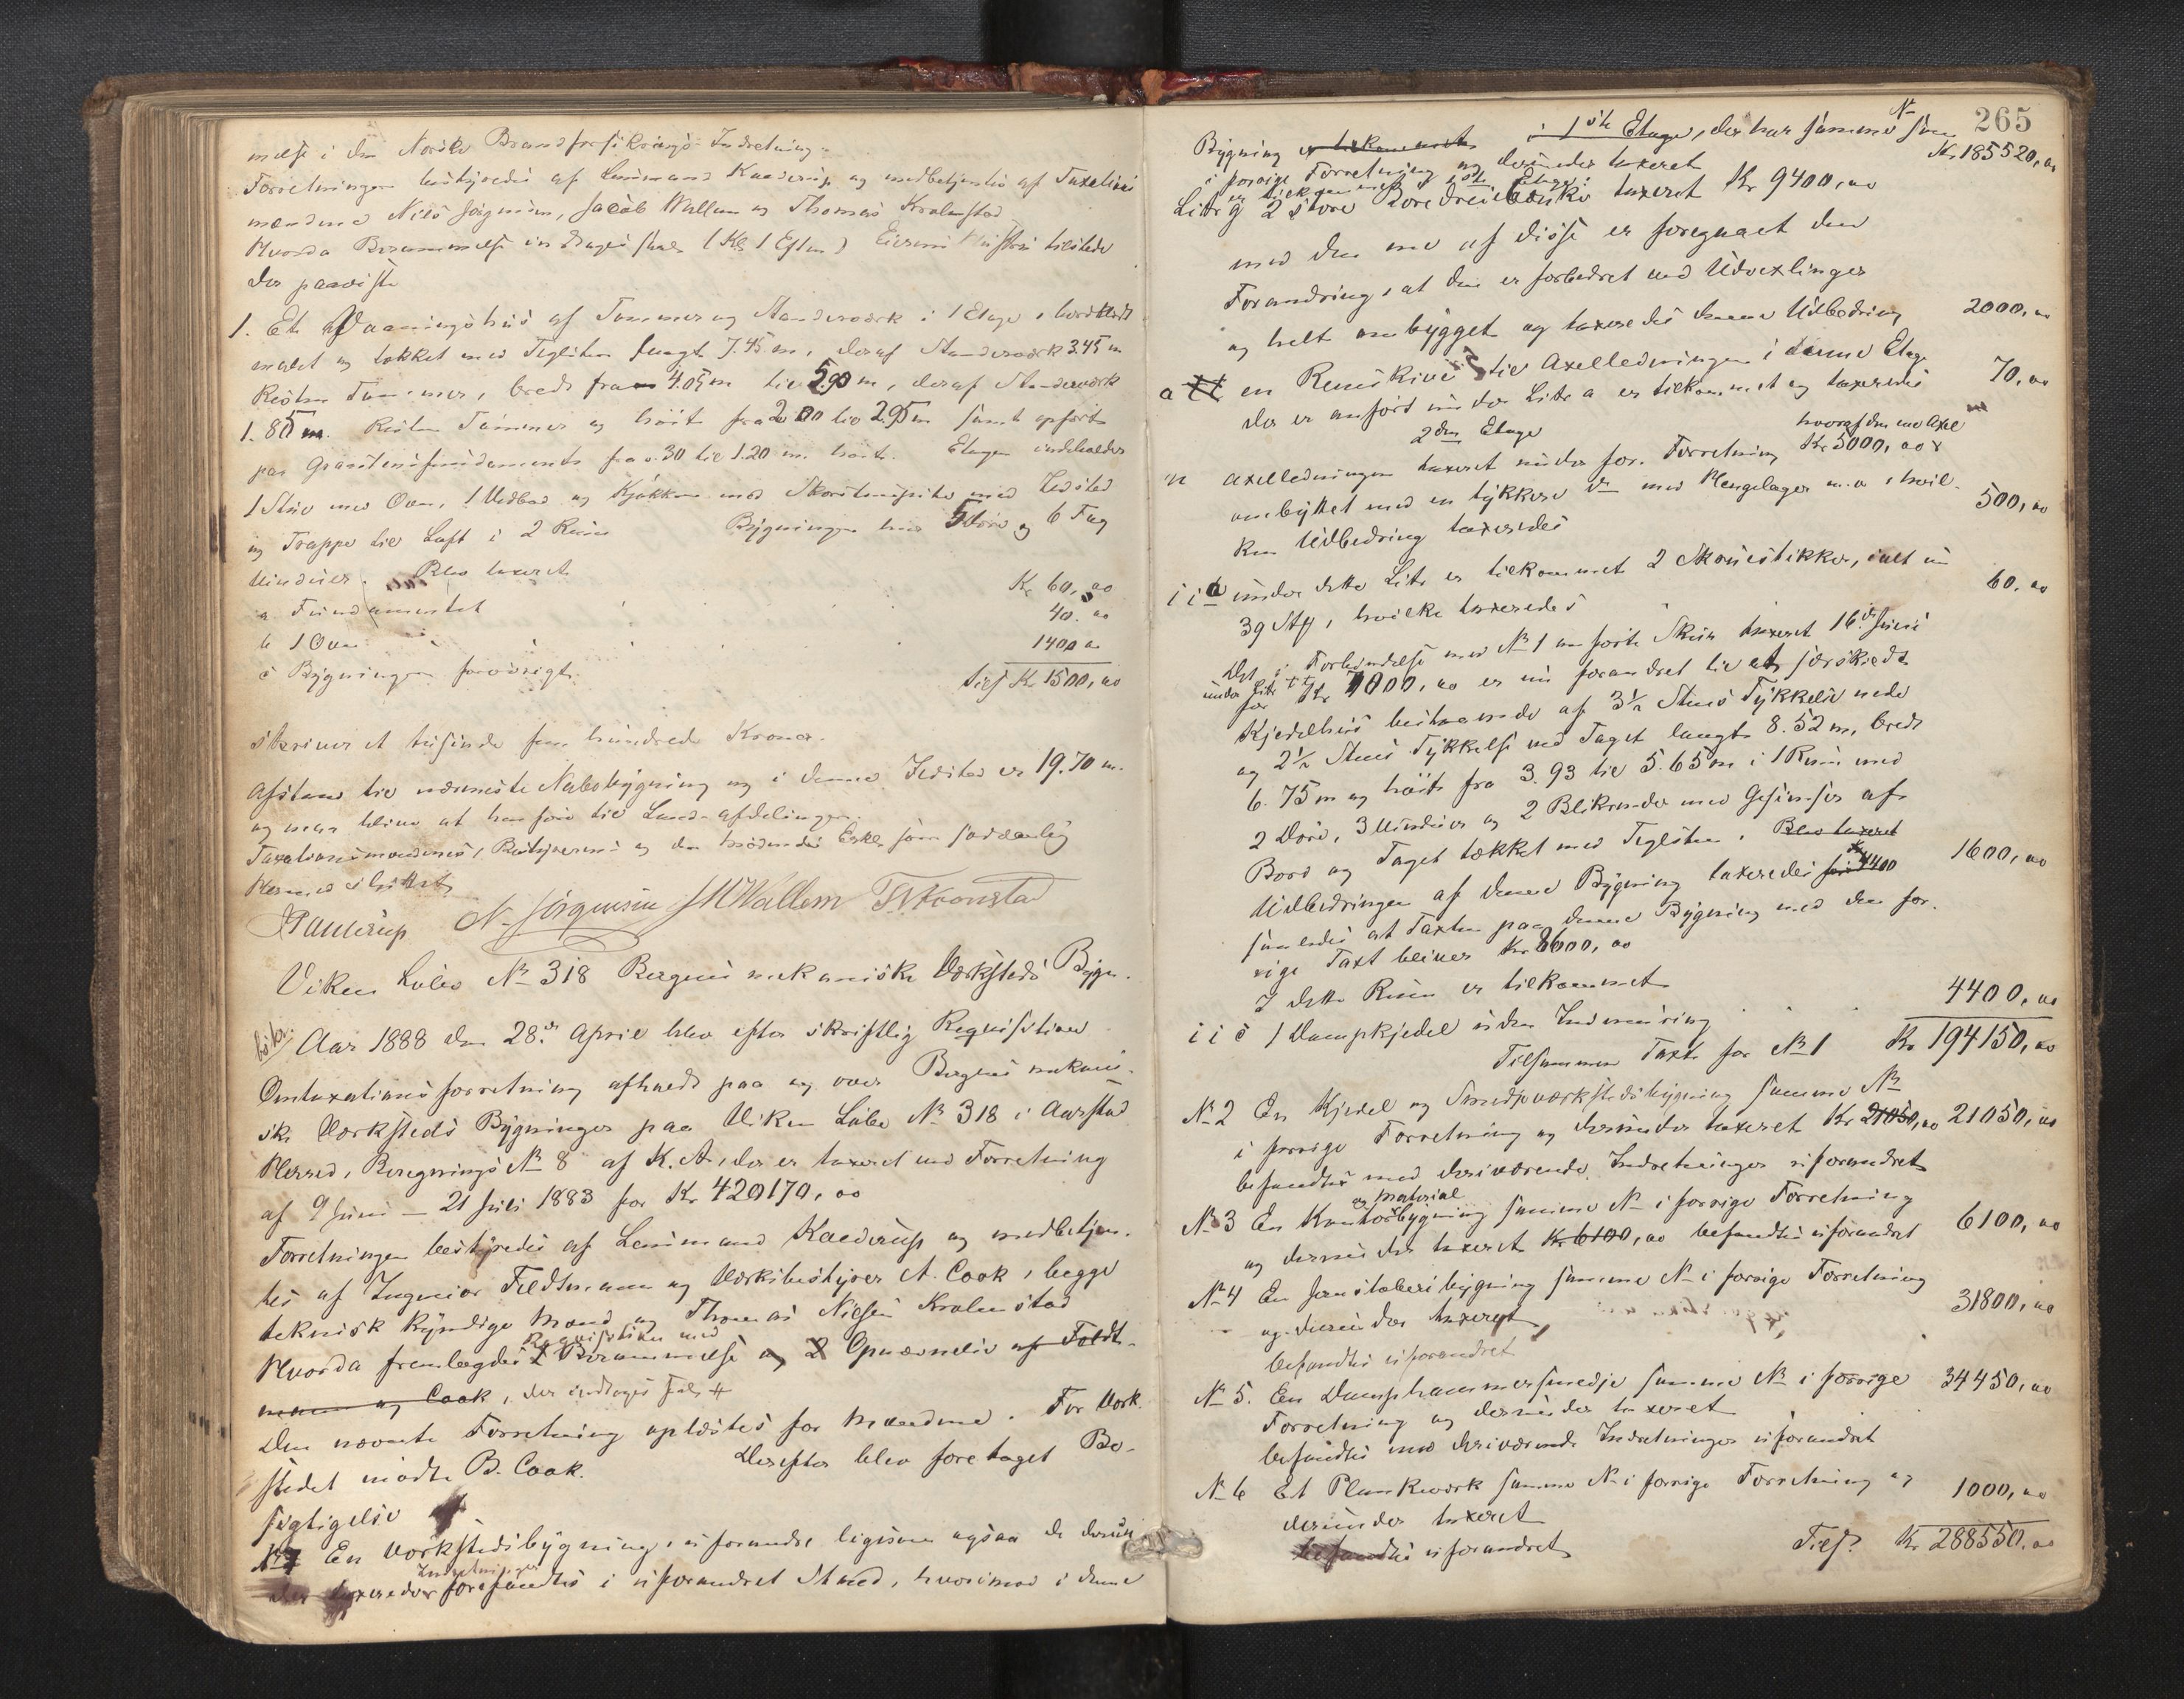 melse i den Norske Brandforsikrings-Indretning
Forretningen bestyredes af Lensmand Kaderup og medbetjentes af Taxations
mændene Nils Jørgensen, Jacob Wallem og Thomas Kralmstad
Hvorda Berammelse indtages her (Kl 1 Efterm) Eieren tilstede
der paaviste
1. Et Vaaningshus af Tømmer og Standerværk i 1 Etage, bordklædt
malet og tækket med Teglsten langt 7.45 m, deraf Standerværk 3.45 m
Resten Tømmer, bredt fra 4.05 m til 5.90 m, deraf Standerværk
1.85 m. Resten Tømmer og høit fra 2.00 til 2.95 m samt opført
paa Graastensfundament fra 0.30 til 1.20 m høit. Etagen indeholder
1 Stue med Ovn, 1 Vedbod og Kjøkken med Skorstenspibe med Ildsted
og Trappe til Loft i 2 Rum Bygningen har 5 Døre og 6 Fag
Vinduer. Blev taxeret
a Fundamentet Kr 60,00
b 1 Ovn 40.00
c Bygningen forøvrigt 1400 00
Tils Kr 1500,00
skriver et tusinde fem hundrede Kroner.
Afstand til nærmeste Nabobygning og i denne Ildsted er 19.70 m.
og man bliver at henføre til Landafdelingen.
Taxationsmændenes, Bestyrerens og den mødendes Enke som sædvanlig
Hermed sluttet
Kaderup N Jørgensen J W Wallem T N Kronstad
Viken Løbe No 318 Bergens mekaniske Værksteds Bygn.
Aar 1888 den 28de April blev efter skriftlig Requisition
Omtaxationsforretning afholdt paa og over Bergens mekani-
ske Værksteds Bygninger paa Viken Løbe No 318 i Aarstad
Herred, Beregnings No 8 af K. A., der er taxeret ved Forretning
af 9 Juni – 21 Juli 1883 for Kr 420170,00
Forretningen bestyredes af Lensmand Kaderup og medbetjen-
tes af Ingeniør Feldtmann og Værksbestyrer A. Cook, begge
teknisk kyndige Mænd og Thomas Nilsen Kralmstad
Requisition med
Hvorda fremlagdes Berammelse og 2 Opnævnelse af Feldt-
mann og Cook, der indtages saal #
Den nævnte Forretning oplæstes for Mændene. For Værk-
stedet mødte B. Cook. Derefter blev foretaget Be-
sigtigelse
No 1 En Værkstedsbygning, uforandret ligesom ogsaa de derun-
Indretninger
der taxerede forefandtes i uforandret Stand, hvorimod i denne
265
Bygning er tilkommet i 1ste Etage, der har samme No som
i forrige Forretning og derunder taxeret Kr 185520,00
er tilkommet 1ste Etage:
Litr g 2 store Boredreiebænke taxeret Kr 9400,00
med den ene af disse er foregaaet den
Forandring, at den er forbedret med Udvexlinger
og helt ombygget og taxeredes denne Udbedring 2000,00
a en Remskive til Axelledningen i denne Etage
der er anført under Litr a er tilkommet og taxeredes 70,00
2den Etage
hvoraf den ene Axel
n Axelledningen taxeret under for. Forretning Kr 5000,00 x
ombyttet med en tykkere do med Hengelager m.v, hvil-
ken Udbedring taxeredes 500,00
i i a under dette Litr er tilkommet 2 Skruestikker, ialt nu
39 Stk, hvilke taxeredes 60.00
Det i Forbindelse med No 1 anførte Skur taxeret 16de Juni
under Litr tt
for Kr 7000,00 er nu forandret til et særskildt
Kjedelhus bestaaende af 3½ Stens Tykkelse nede
og 2½ Stens Tykkelse ved Taget langt 8.52 m, bredt
6.75 m og høit fra 3.93 til 5.65 m i 1 Rum med
2 Døre, 3 Vinduer og 2 Blikrender med Gesimser af
Bord og Taget tækket med Teglsten. Blev taxeret
Udbedringen af denne Bygning taxeredes for 4400 1600,00
saaledes at Taxten paa denne Bygning med den for-
rige Taxt bliver Kr 8600,00
I dette Rum er tilkommet
i i c 1 Dampkjedel uden Indmuring 4400,00
Tilsammen Taxt for No 1 Kr 194150,00
No 2 En Kjedel og Smedjeværkstedsbygning samme No
i forrige Forretning og derunder taxeret Kr 21050,00 21050,00
befandtes med deriværende Indretninger uforandret
og Material
No 3 En Kontorbygning samme No i forrige Forretning
og derunder taxeret Kr 6100,00 befandtes uforandret 6100,00
No 4 En Jernstøberibygning samme No i forrige Forretning
og derunder taxeret 31800,00
befandtes uforandret
No 5. En Damphammersmedje samme No i forrige 34450,00
Forretning og derunder taxeret
befandtes med deriværende Indretninger uforandret
No 6 Et Plankeværk samme No i forrige Forretning og 1000,00
derunder taxeret
befandtes uforandret Tils. Kr 288550.00